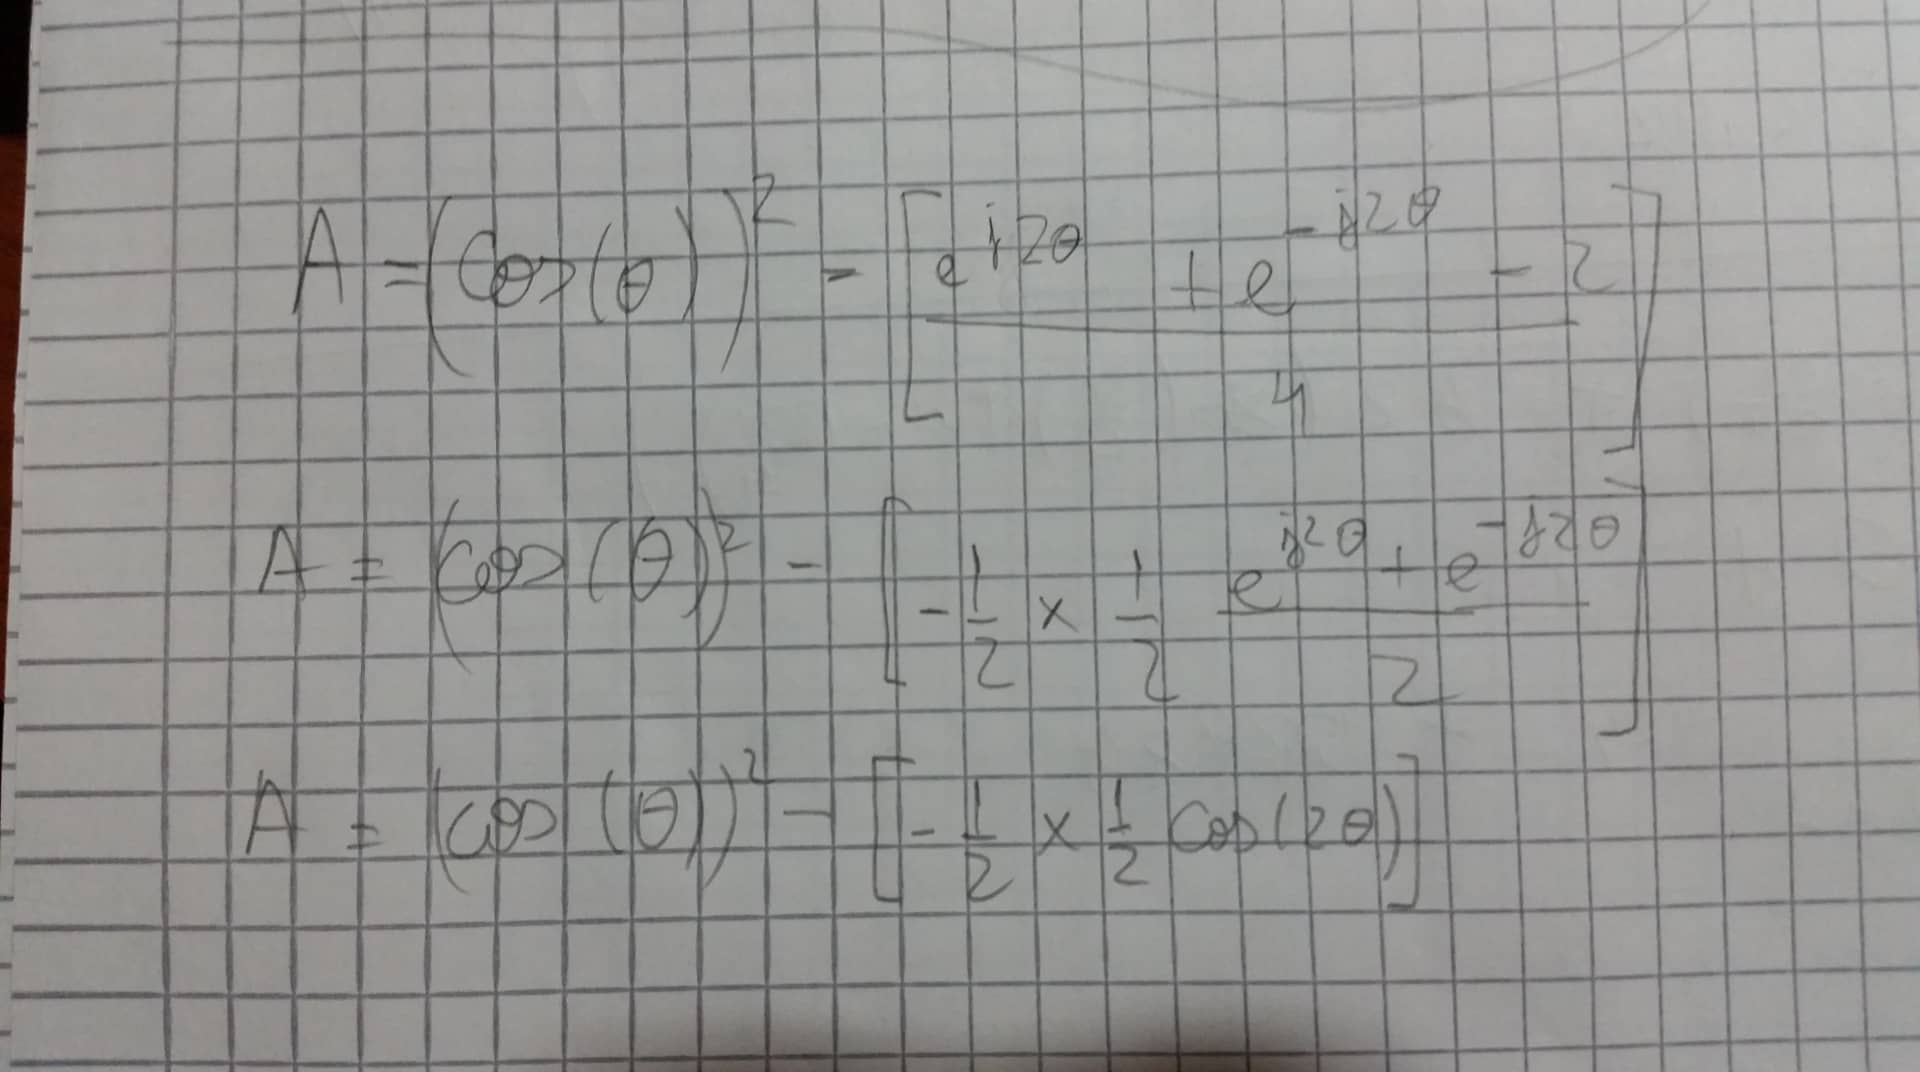 A = (Cos(θ))² - [(e^{j2θ} + e^{-j2θ} - 2) / 4]
A = (cos(θ))² - [-1/2 × 1/2 (e^{j2θ} + e^{-j2θ}) / 2]
A = (cos(θ))² - [-1/2 × 1/2 Cos(2θ)]